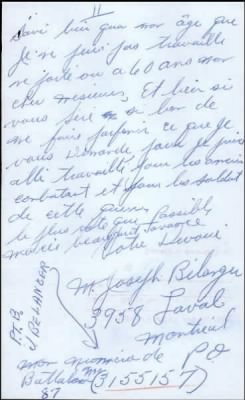 11
savi bien qua mon âge que
je ne puis pas travaille
ne joite ou a 60 ans mon
cher mesieurs, Et bien si
vous sere si bon de
me faire parvenir ce que je
vous demande pour je puis
allé travaillé pour les anciens
combatant et pour les soldat
de cette guerre
le plus vite que possible
mercie beaucoup d'avance
Votre Devoué.
M. Joseph Bélanger
3958 Laval
Montreal
P.Q
mon numero de
Battalion
87
(3155157)
P.T.B.
J BELANGER